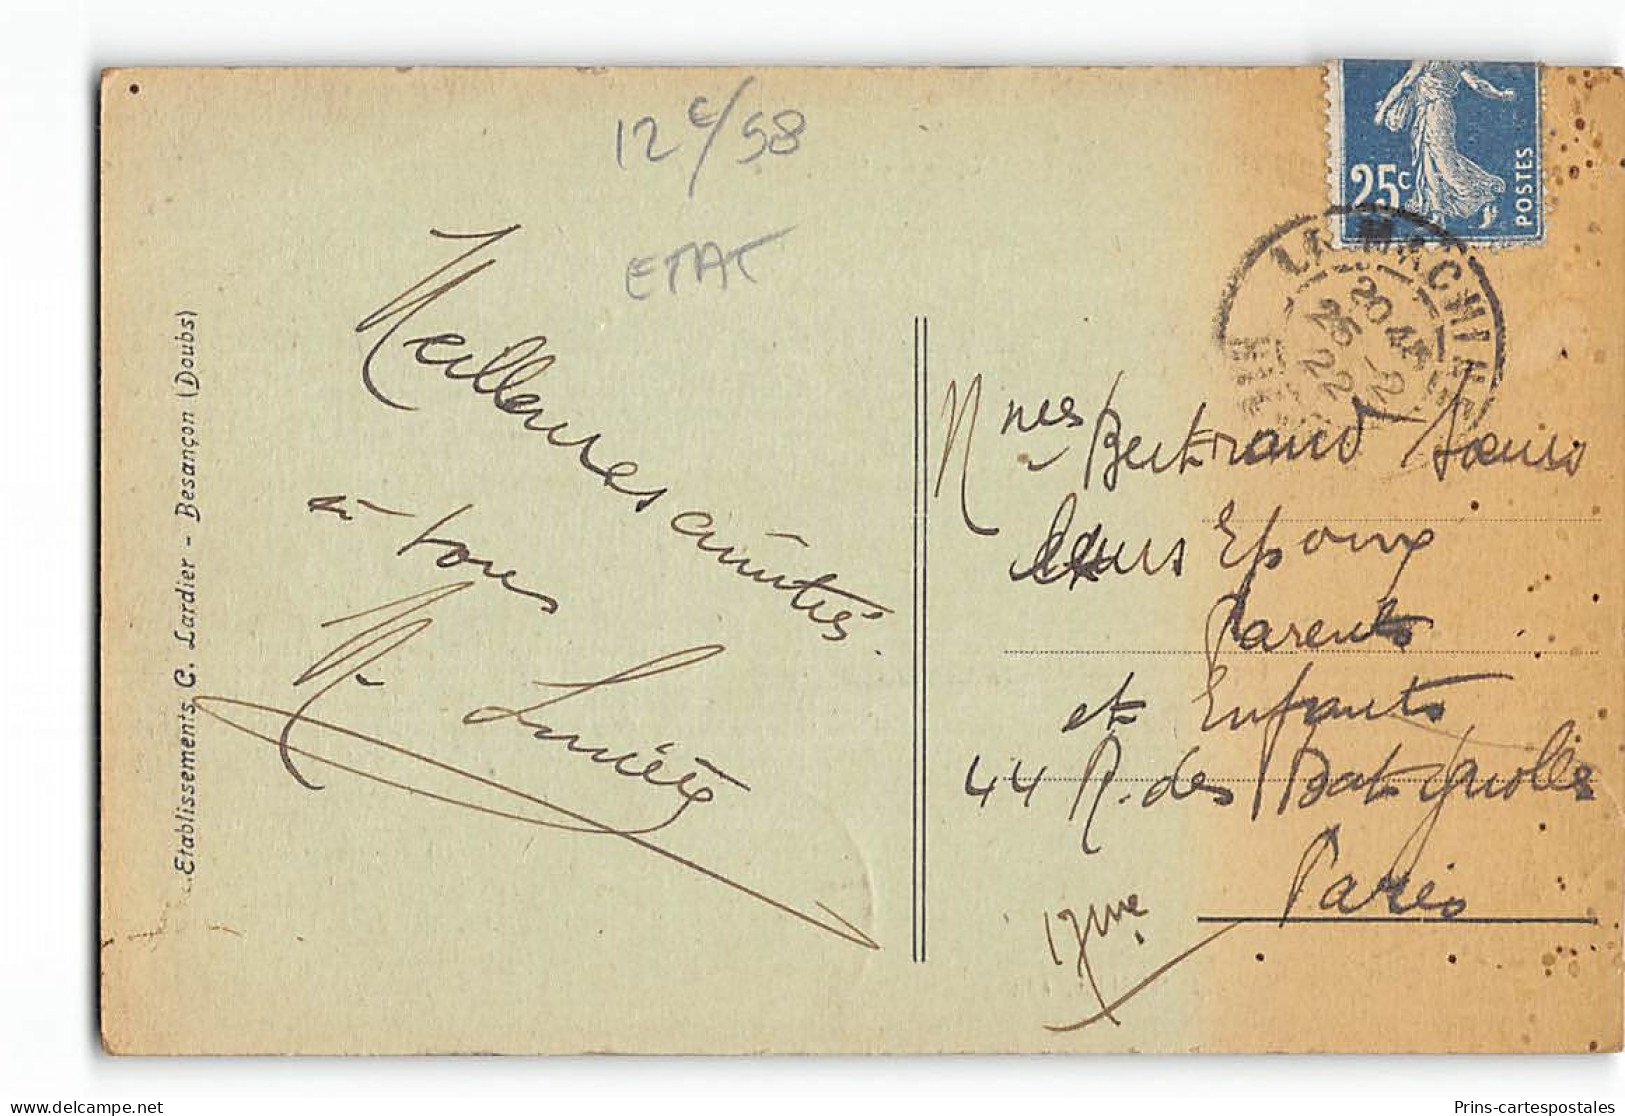 12 c/58
ETAT
Meilleures amitiés
à tous
Etablissements C. Lardier - Besançon (Doubs)
25c
POSTES
LA MACHINE
20 45
25 - 2
22
Mmes Bertrand Sœurs
leurs Epoux
Parents
et Enfants
44 R. des Batignolles
Paris
17me
Prins-cartespostales